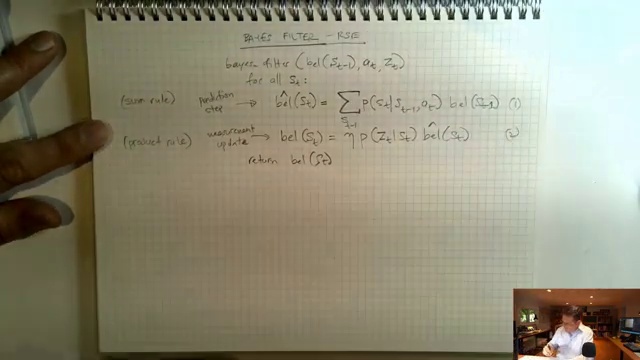 BAYES FILTER - RSE
bayes filter (bel(S_{t-1}), a_t, Z_t)
for all S_t:
(sum rule) prediction step → b̂el(S_t) = ∑_{S_{t-1}} P(S_t|S_{t-1}, a_t) bel(S_{t-1}) (1)
(product rule) measurement update → bel(S_t) = η P(Z_t|S_t) b̂el(S_t) (2)
return bel(S_t)